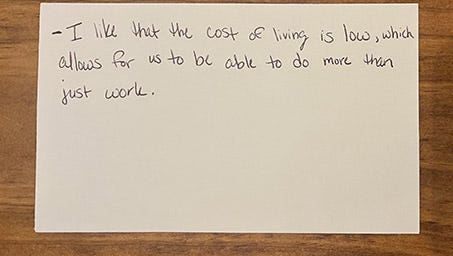 - I like that the cost of living is low, which
allows for us to be able to do more than
just work.